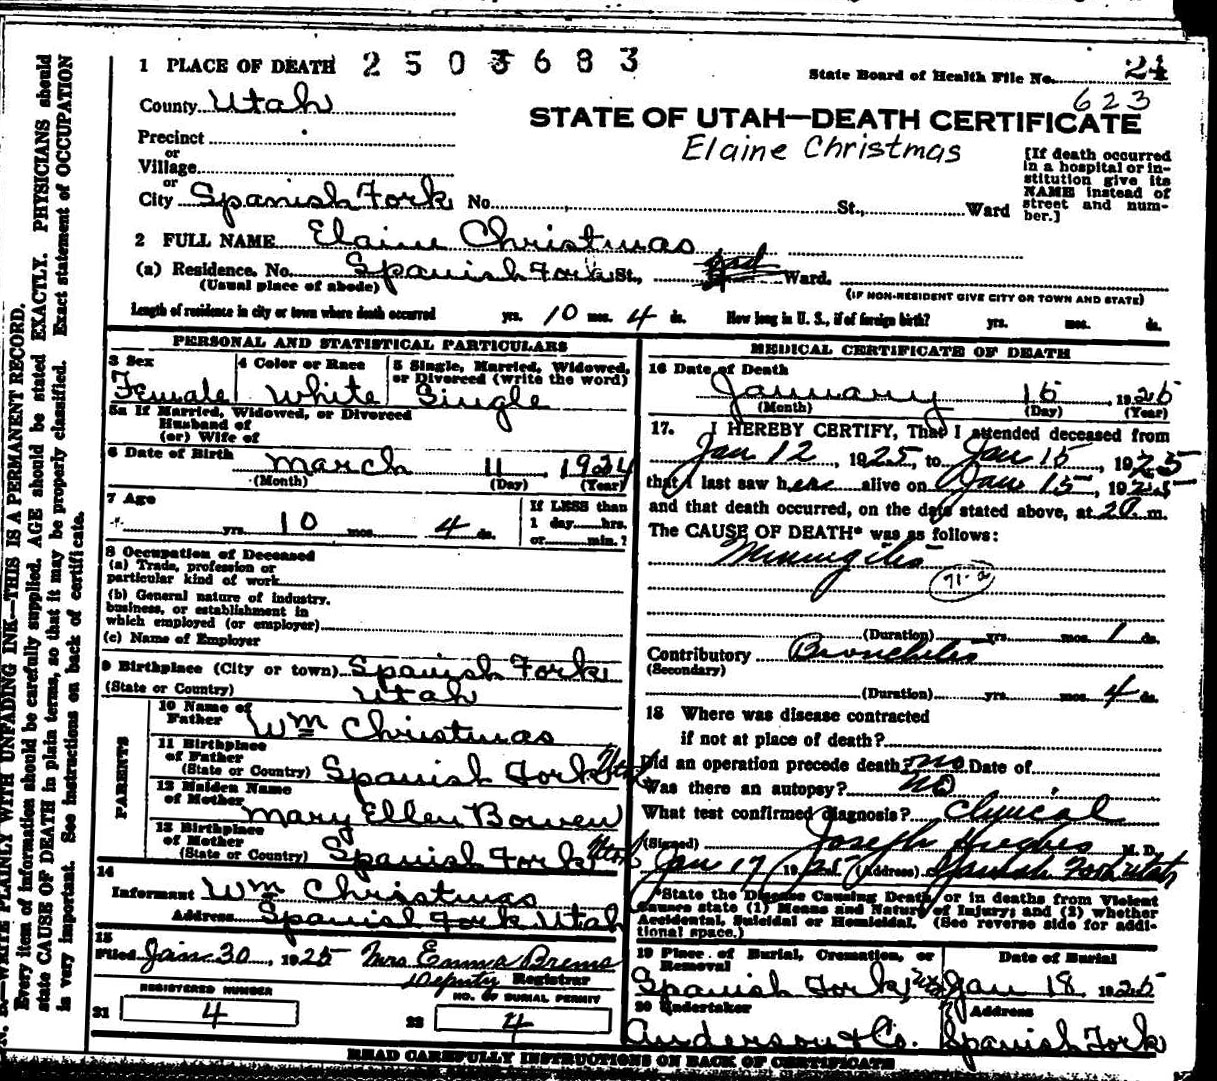 1 PLACE OF DEATH 2503683
State Board of Health File No. 24
623
County Utah
STATE OF UTAH—DEATH CERTIFICATE
Elaine Christmas
Precinct
or
Village
or
City Spanish Fork No. St., Ward
[If death occurred in a hospital or institution give its NAME instead of street and number.]
2 FULL NAME Elaine Christmas
(a) Residence. No. Spanish Fork St., Ward,
(Usual place of abode)
(IF NON-RESIDENT GIVE CITY OR TOWN AND STATE)
Length of residence in city or town where death occurred yrs. 10 mos. 4 ds. How long in U. S., if of foreign birth? yrs. mos. ds.
PERSONAL AND STATISTICAL PARTICULARS
3 Sex
Female
4 Color or Race
White
5 Single, Married, Widowed, or Divorced (write the word)
Single
5a If Married, Widowed, or Divorced
Husband of
(or) Wife of
6 Date of Birth
March 11, 1924
(Month) (Day) (Year)
7 Age
yrs. 10 mos. 4 ds.
If LESS than
1 day......hrs.
or......min.?
8 Occupation of Deceased
(a) Trade, profession or
particular kind of work
(b) General nature of industry,
business, or establishment in
which employed (or employer)
(c) Name of Employer
9 Birthplace (City or town) Spanish Fork
(State or Country) Utah
PARENTS
10 Name of
Father Wm Christmas
11 Birthplace
of Father
(State or Country) Spanish Fork Utah
12 Maiden Name
of Mother Mary Ellen Bowen
13 Birthplace
of Mother
(State or Country) Spanish Fork Utah
14
Informant Wm Christmas
Address Spanish Fork Utah
15
Filed Jan 30, 1925 Mrs. Emma Brems
Deputy Registrar
REGISTERED NUMBER
21 4
NO. OF BURIAL PERMIT
22 4
MEDICAL CERTIFICATE OF DEATH
16 Date of Death
January 15, 1925
(Month) (Day) (Year)
17. I HEREBY CERTIFY, That I attended deceased from
Jan 12, 1925, to Jan 15, 1925
that I last saw her alive on Jan 15, 1925
and that death occurred, on the date stated above, at m.
The CAUSE OF DEATH* was as follows:
Meningitis
71-a
(Duration) yrs. mos. 1 ds.
Contributory Bronchitis
(Secondary)
(Duration) yrs. mos. 4 ds.
18 Where was disease contracted
if not at place of death?
Did an operation precede death? no Date of
Was there an autopsy? no
What test confirmed diagnosis? Clinical
(Signed) Joseph Hughes M. D.
Jan 17, 1925 (Address) Spanish Fork Utah
*State the Disease Causing Death, or in deaths from Violent Causes state (1) Means and Nature of Injury; and (2) whether Accidental, Suicidal or Homicidal. (See reverse side for additional space.)
19 Place of Burial, Cremation, or Removal
Spanish Fork
Date of Burial
Jan 18, 1925
20 Undertaker
Anderson & Co.
Address
Spanish Fork
READ CAREFULLY INSTRUCTIONS ON BACK OF CERTIFICATE
N. B.—WRITE PLAINLY WITH UNFADING INK—THIS IS A PERMANENT RECORD.
Every item of information should be carefully supplied. AGE should be stated EXACTLY. PHYSICIANS should
state CAUSE OF DEATH in plain terms, so that it may be properly classified. Exact statement of OCCUPATION
is very important. See instructions on back of certificate.